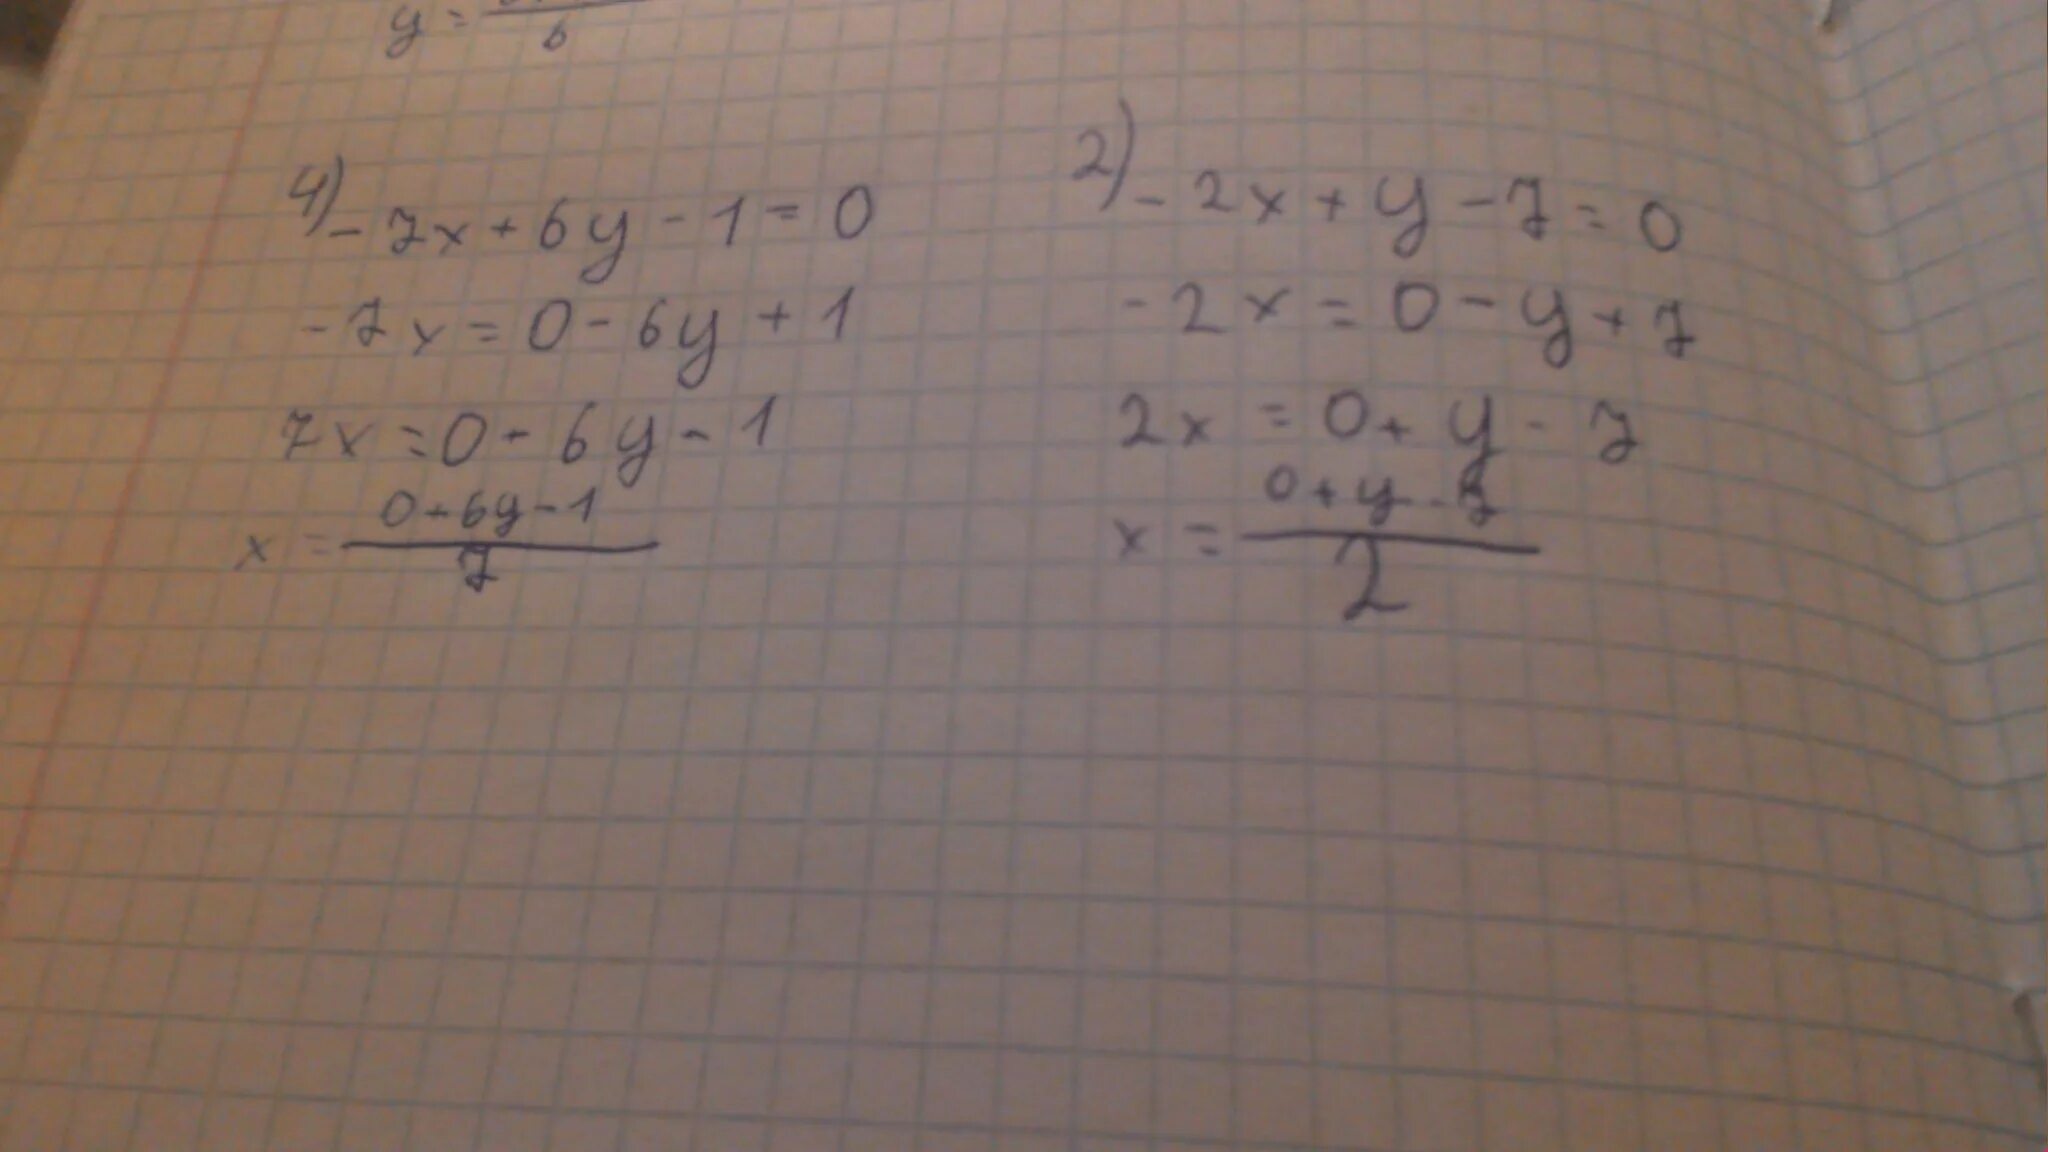 y = 6
4) - 7x + 6y - 1 = 0
- 7x = 0 - 6y + 1
7x = 0 - 6y - 1
x = (0 + 6y - 1) / 7
2) - 2x + y - 7 = 0
- 2x = 0 - y + 7
2x = 0 + y - 7
x = (0 + y - 7) / 2